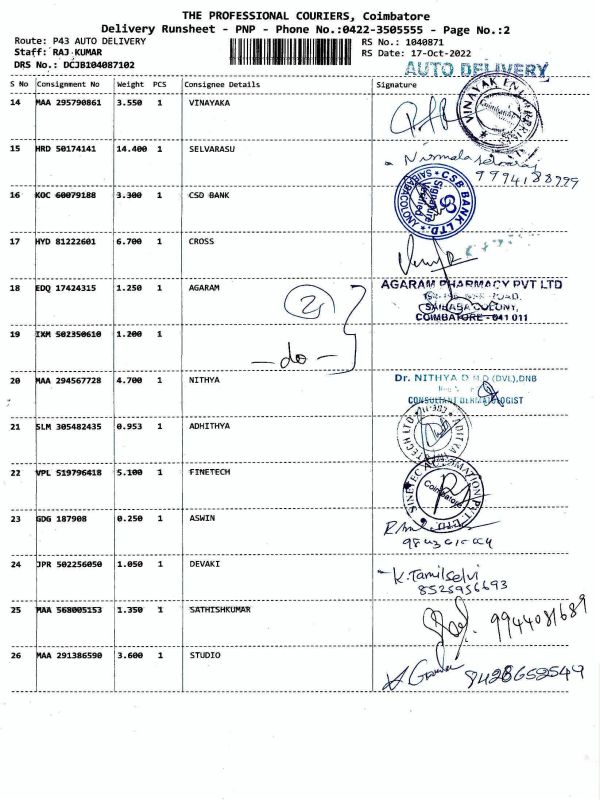 THE PROFESSIONAL COURIERS, Coimbatore
Delivery Runsheet - PNP - Phone No.:0422-3505555 - Page No.:2
Route: P43 AUTO DELIVERY
RS No.: 1040871
Staff: RAJ KUMAR
RS Date: 17-Oct-2022
DRS No.: DCJB104087102
AUTO DELIVERY
S No Consignment No Weight PCS Consignee Details Signature
14 MAA 295790861 3.550 1 VINAYAKA
VINAYAK
Coimbatore
15 HRD 50174141 14.400 1 SELVARASU
Nirmala
9994188999
16 KOC 60079188 3.300 1 CSD BANK
CSB BANK LTD.
Signature
17 HYD 81222601 6.700 1 CROSS
18 EDQ 17424315 1.250 1 AGARAM
AGARAM PHARMACY PVT LTD
SAIBABA COLONY,
COIMBATORE - 641 011
19 IXM 502350610 1.200 1
- do -
20 MAA 294567728 4.700 1 NITHYA
Dr. NITHYA D M D (DVL),DNB
CONSULTANT DERMATOLOGIST
21 SLM 305482435 0.953 1 ADHITHYA
ADITYA
TECH LTD
22 VPL 519796418 5.100 1 FINETECH
Coimbatore
23 GDG 187908 0.250 1 ASWIN
24 JPR 502256050 1.050 1 DEVAKI
K.Tamilselvi
8525956693
25 MAA 568005153 1.350 1 SATHISHKUMAR
9944081689
26 MAA 291386590 3.600 1 STUDIO
9428652549